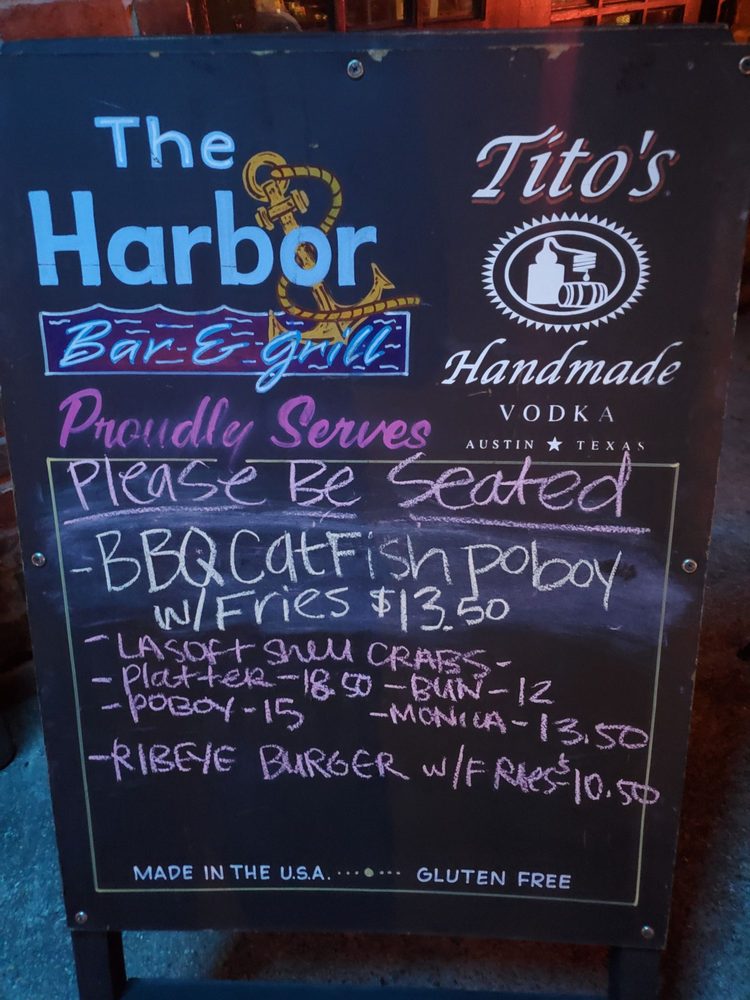 The
Harbor
Bar & grill
Proudly Serves
Tito's
Handmade
VODKA
AUSTIN ★ TEXAS
Please Be Seated
- BBQ CatFish poboy
w/Fries $13.50
- LA SOFT SHELL CRABS -
- Platter - 18.50 - BUN - 12
- POBOY - 15 - MONICA - 13.50
- RIBEYE BURGER w/FRIES - $10.50
MADE IN THE U.S.A. ···•··· GLUTEN FREE